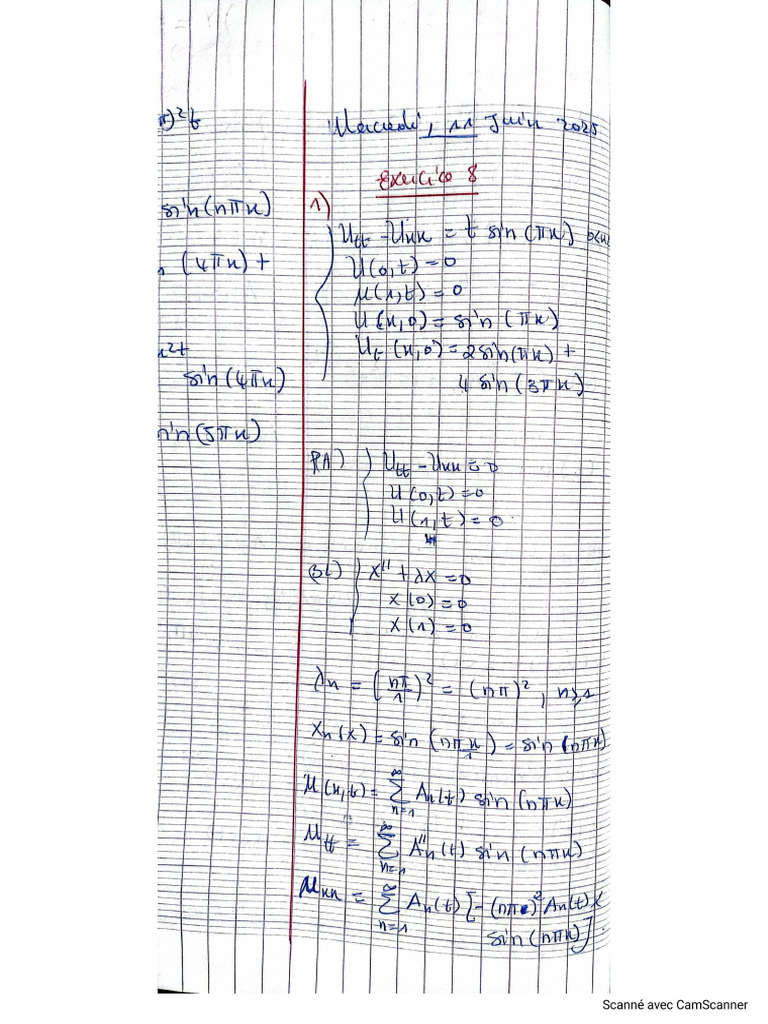 )²t
sin(nπx)
(4πx) +
π²t
sin(4πx)
sin(5πx)
Mercredi, 11 Juin 2025
Exercice 8
1)
Utt - Uxx = t sin(πx) 0<x
U(0,t) = 0
U(1,t) = 0
U(x,0) = sin(πx)
Ut(x,0) = 2sin(πx) +
4 sin(3πx)
PA)
Utt - Uxx = 0
U(0,t) = 0
U(1,t) = 0
SL)
X'' + λX = 0
X(0) = 0
X(1) = 0
λn = (nπ/1)² = (nπ)², n≥1
Xn(x) = sin(nπx/1) = sin(nπx)
U(x,t) = ∑_{n=1}^{∞} An(t) sin(nπx)
Utt = ∑_{n=1}^{∞} A''n(t) sin(nπx)
Uxx = ∑_{n=1}^{∞} An(t)[-(nπ)² An(t) x
sin(nπx)]
Scanné avec CamScanner